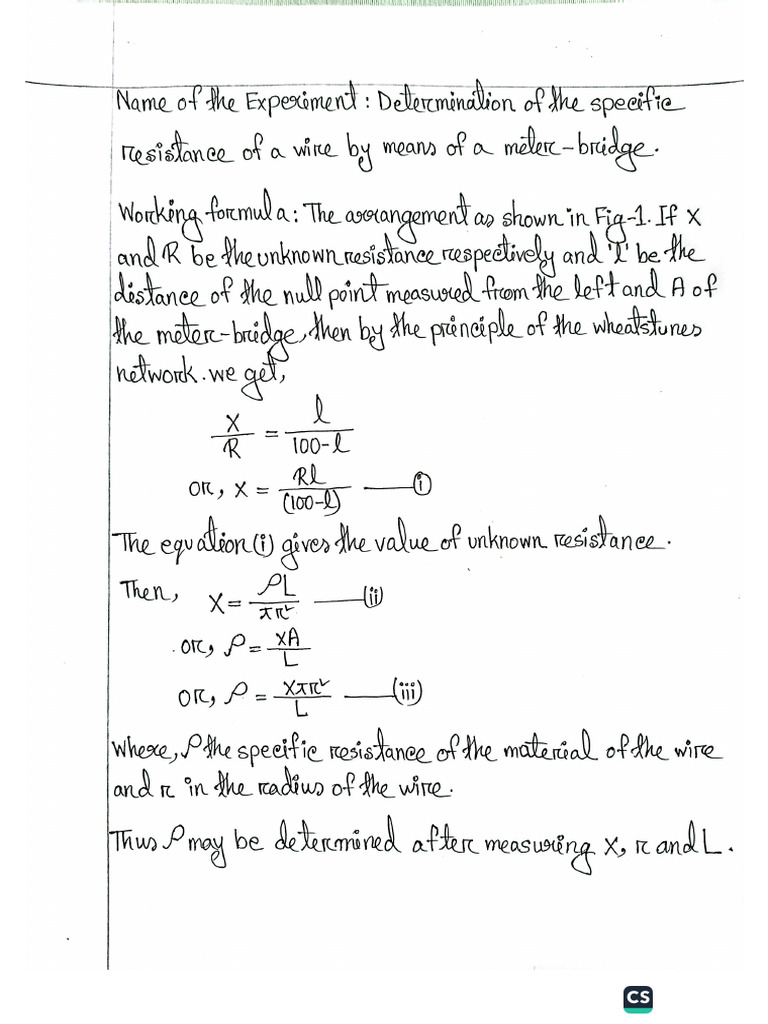 Name of the Experiment : Determination of the specific
resistance of a wire by means of a meter-bridge.
Working formula: The arrangement as shown in Fig-1. If X
and R be the unknown resistance respectively and 'l' be the
distance of the null point measured from the left and A of
the meter-bridge, then by the principle of the wheatstunes
network. we get,
X/R = l/(100-l)
or, X = Rl/(100-l) —— (i)
The equation (i) gives the value of unknown resistance.
Then, X = ρL/πr² —— (ii)
or, ρ = XA/L
or, ρ = Xπr²/L —— (iii)
Where, ρ the specific resistance of the material of the wire
and r in the radius of the wire.
Thus ρ may be determined after measuring X, r and L.
CS